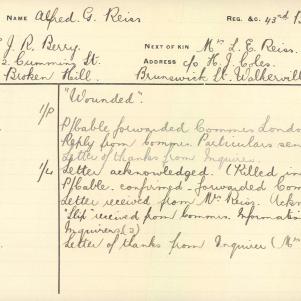 NAME Alfred G. Reiss REG. &C. 43rd
J. R. Berry NEXT OF KIN Mrs L. E. Reiss
Cummins St. ADDRESS c/o H. J. Coles
Broken Hill. Brunswick St. Walkervill
"Wounded".
P/Cable forwarded Commrs Lond
Reply from Commrs. Particulars sen
Letter of thanks from Inquirer.
Letter acknowledged. (Killed in
P/Cable. confirmg. forwarded Com
Letter received from Mrs Reiss. Ackn
"Slip" received from Commrs. Information
Inquirers (2)
Letter of thanks from Inquirer (Mrs